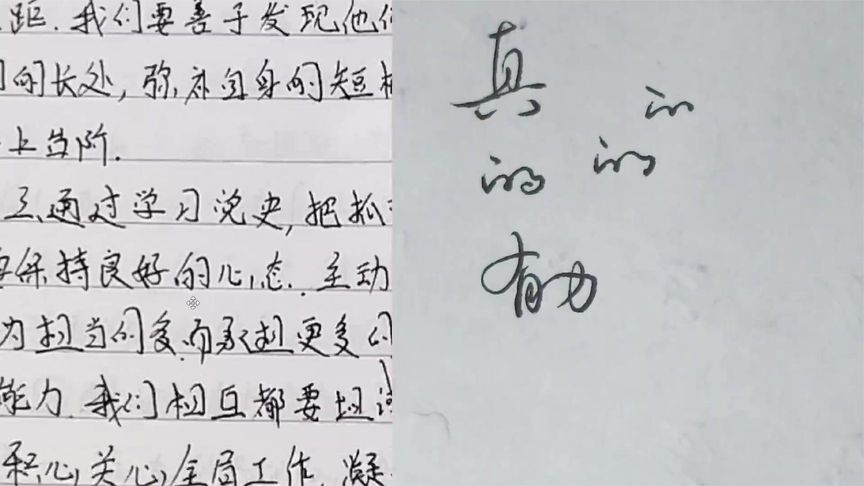 距. 我们要善于发现他们
的长处, 弥补自身的短板
上台阶.
三、通过学习党史, 把抓
保持良好的心态. 主动
为担当的多,而承担更多的
能力. 我们相互都要坦诚
积心关心全局工作, 凝
真
的
的
的
有力